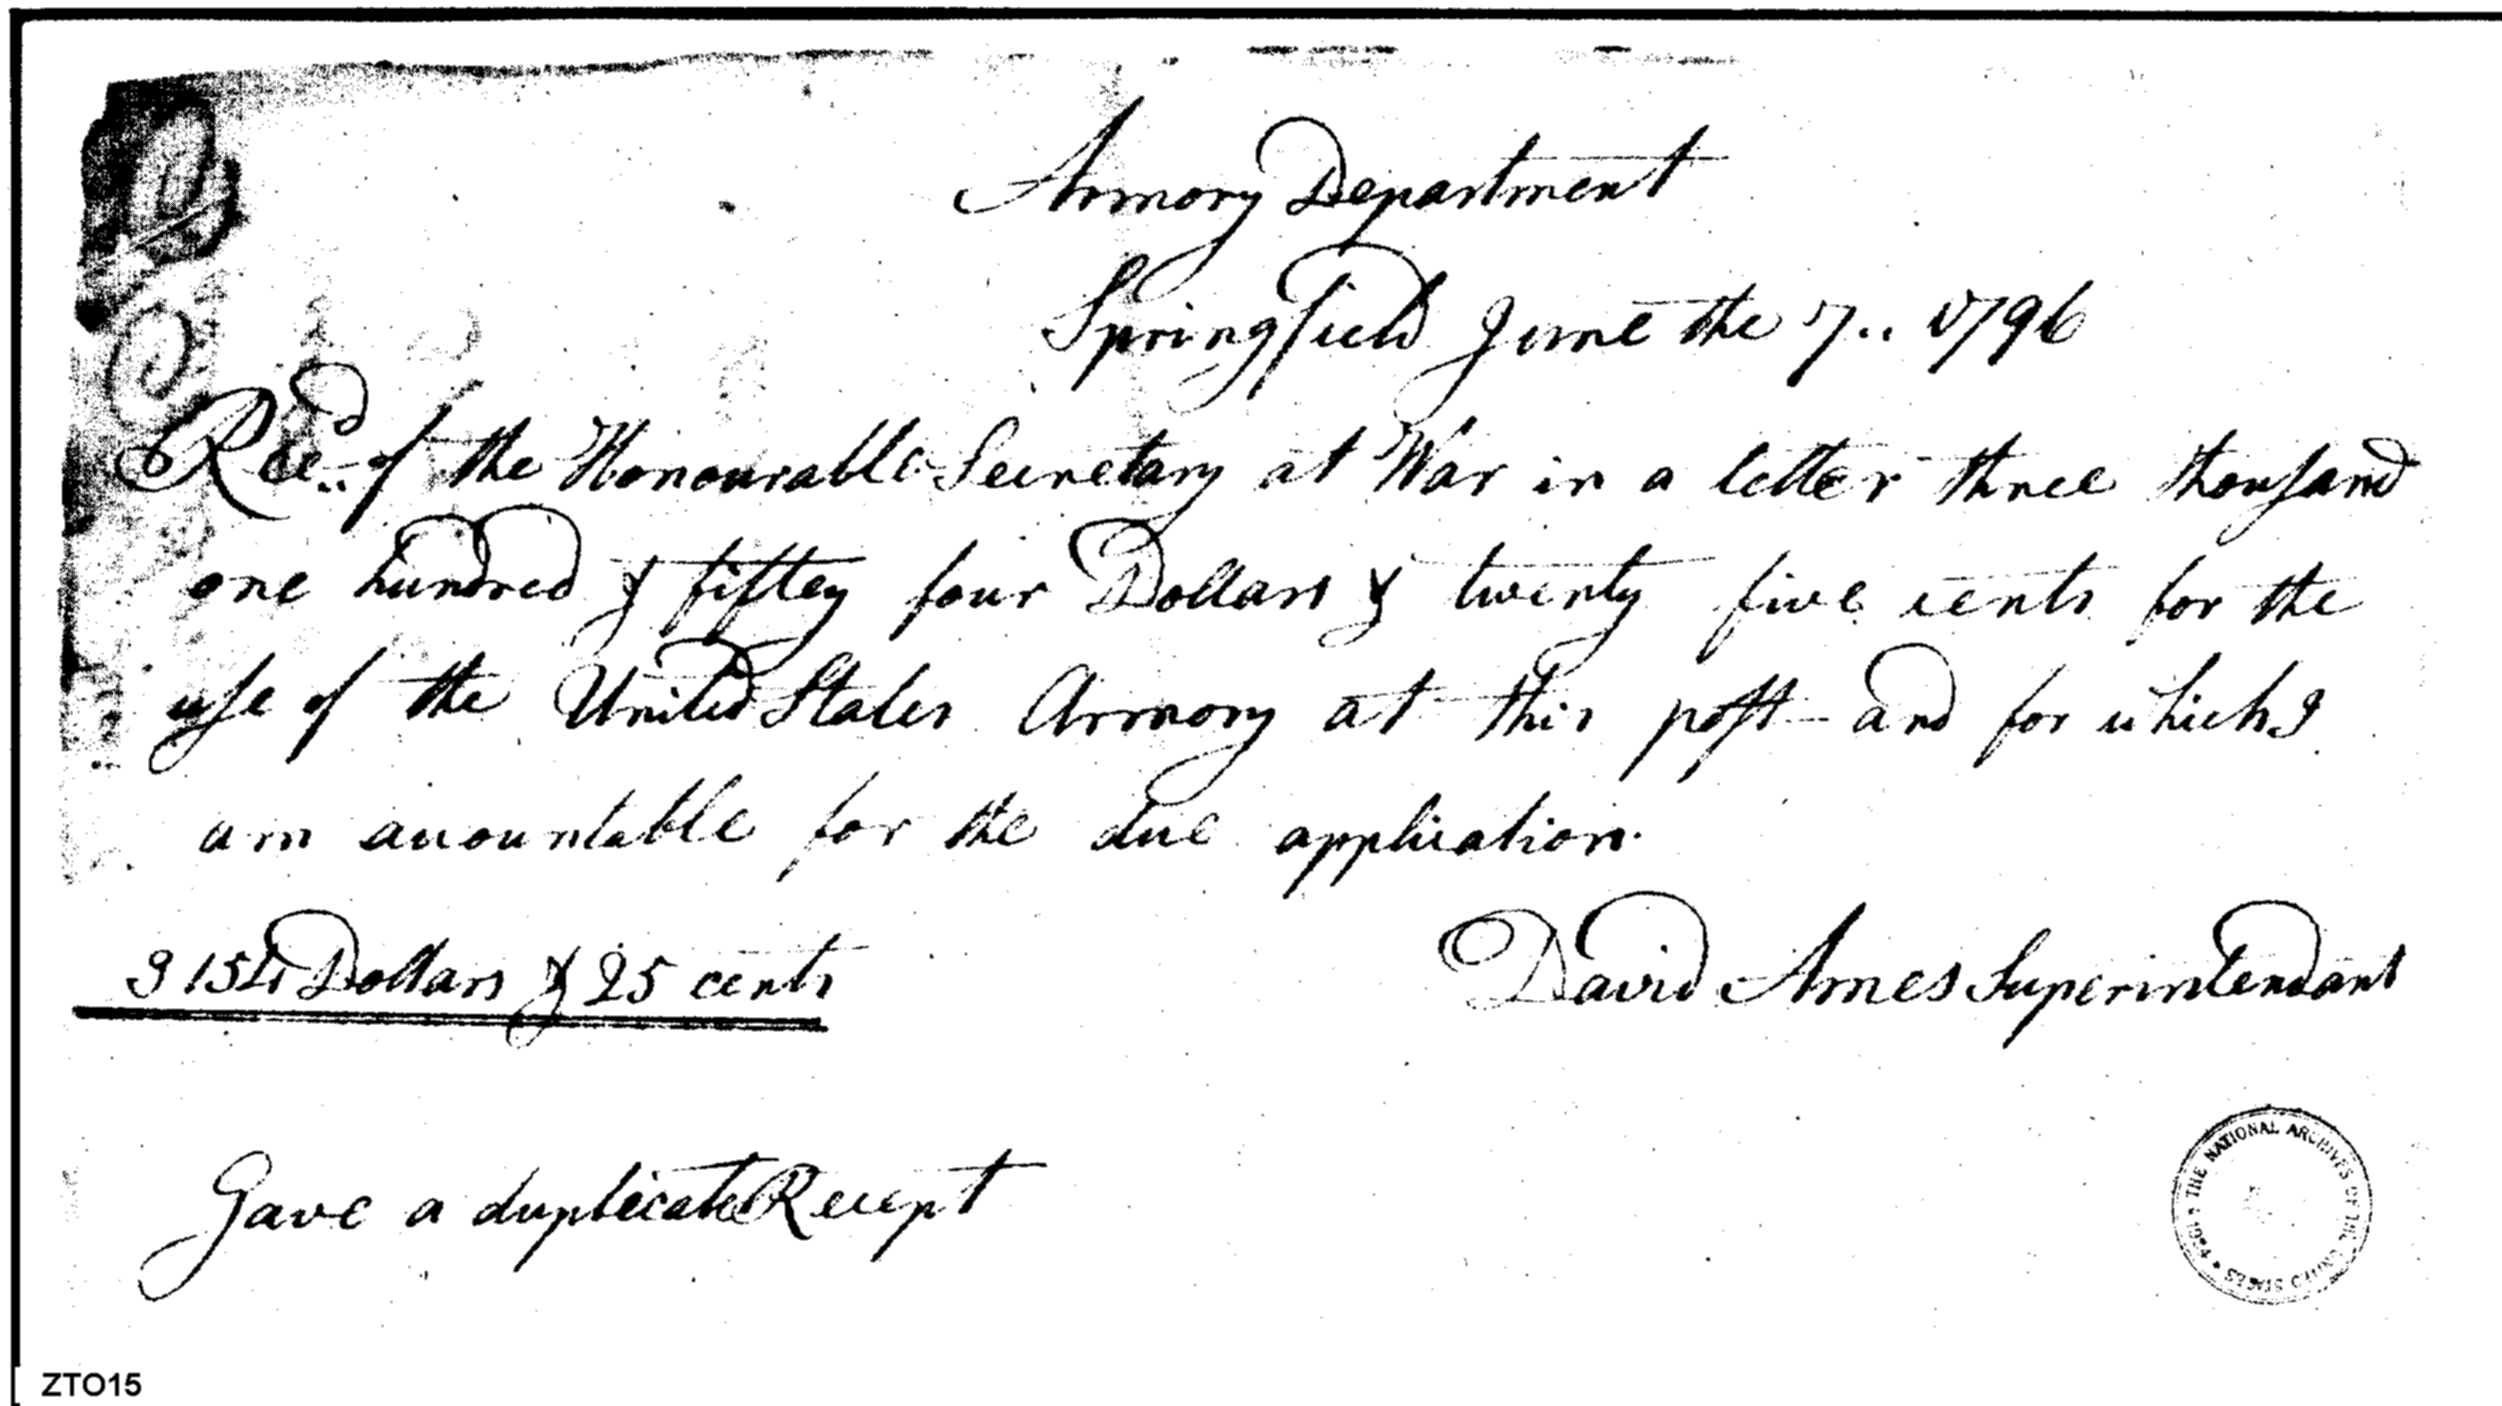 Armory Department
Springfield June the 7.. 1796
Recd. of the Honourable Secretary at War in a letter three thousand
one hundred & fiftey four Dollars & twenty five cents for the
use of the United States Armory at this post and for which I
am accountable for the due application.
3154 Dollars & 25 cents
David Ames Superintendant
Gave a duplicate Recept
THE NATIONAL ARCHIVES OF THE UNITED STATES ★ 1934 ★
ZTO15